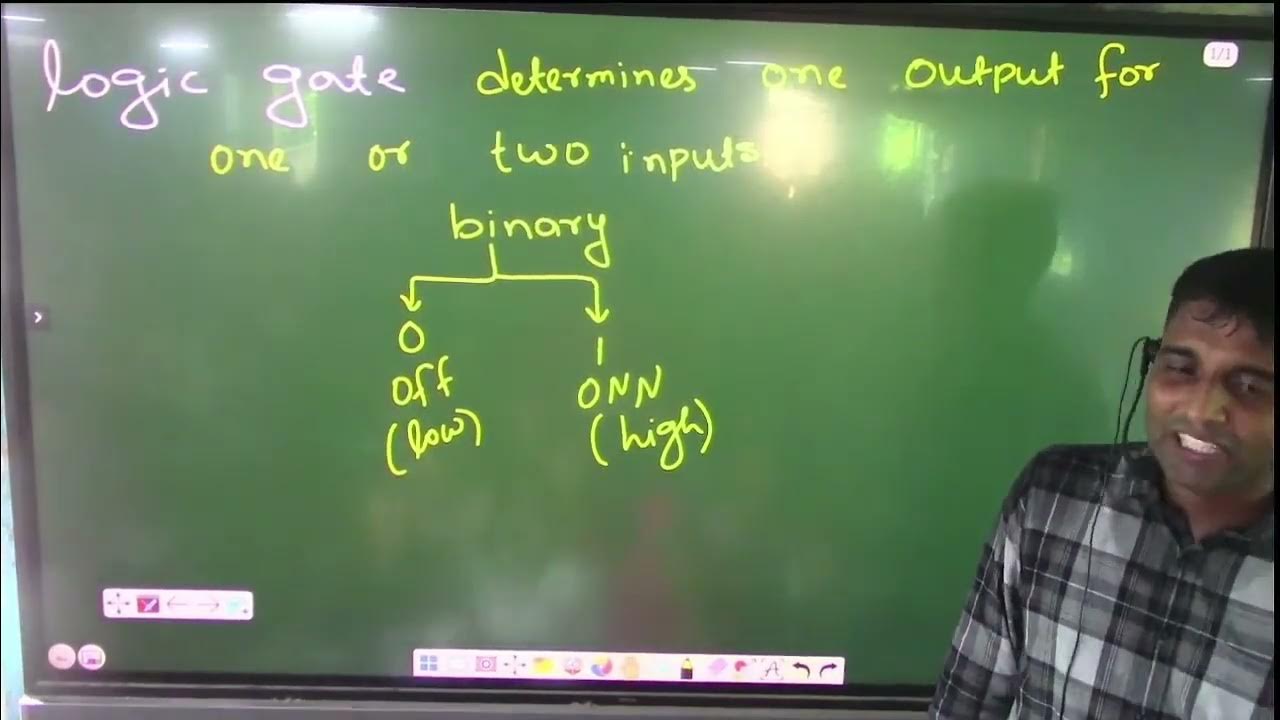 logic gate determines one output for
1/1
one or two inputs
binary
0 1
Off ONN
(low) (high)